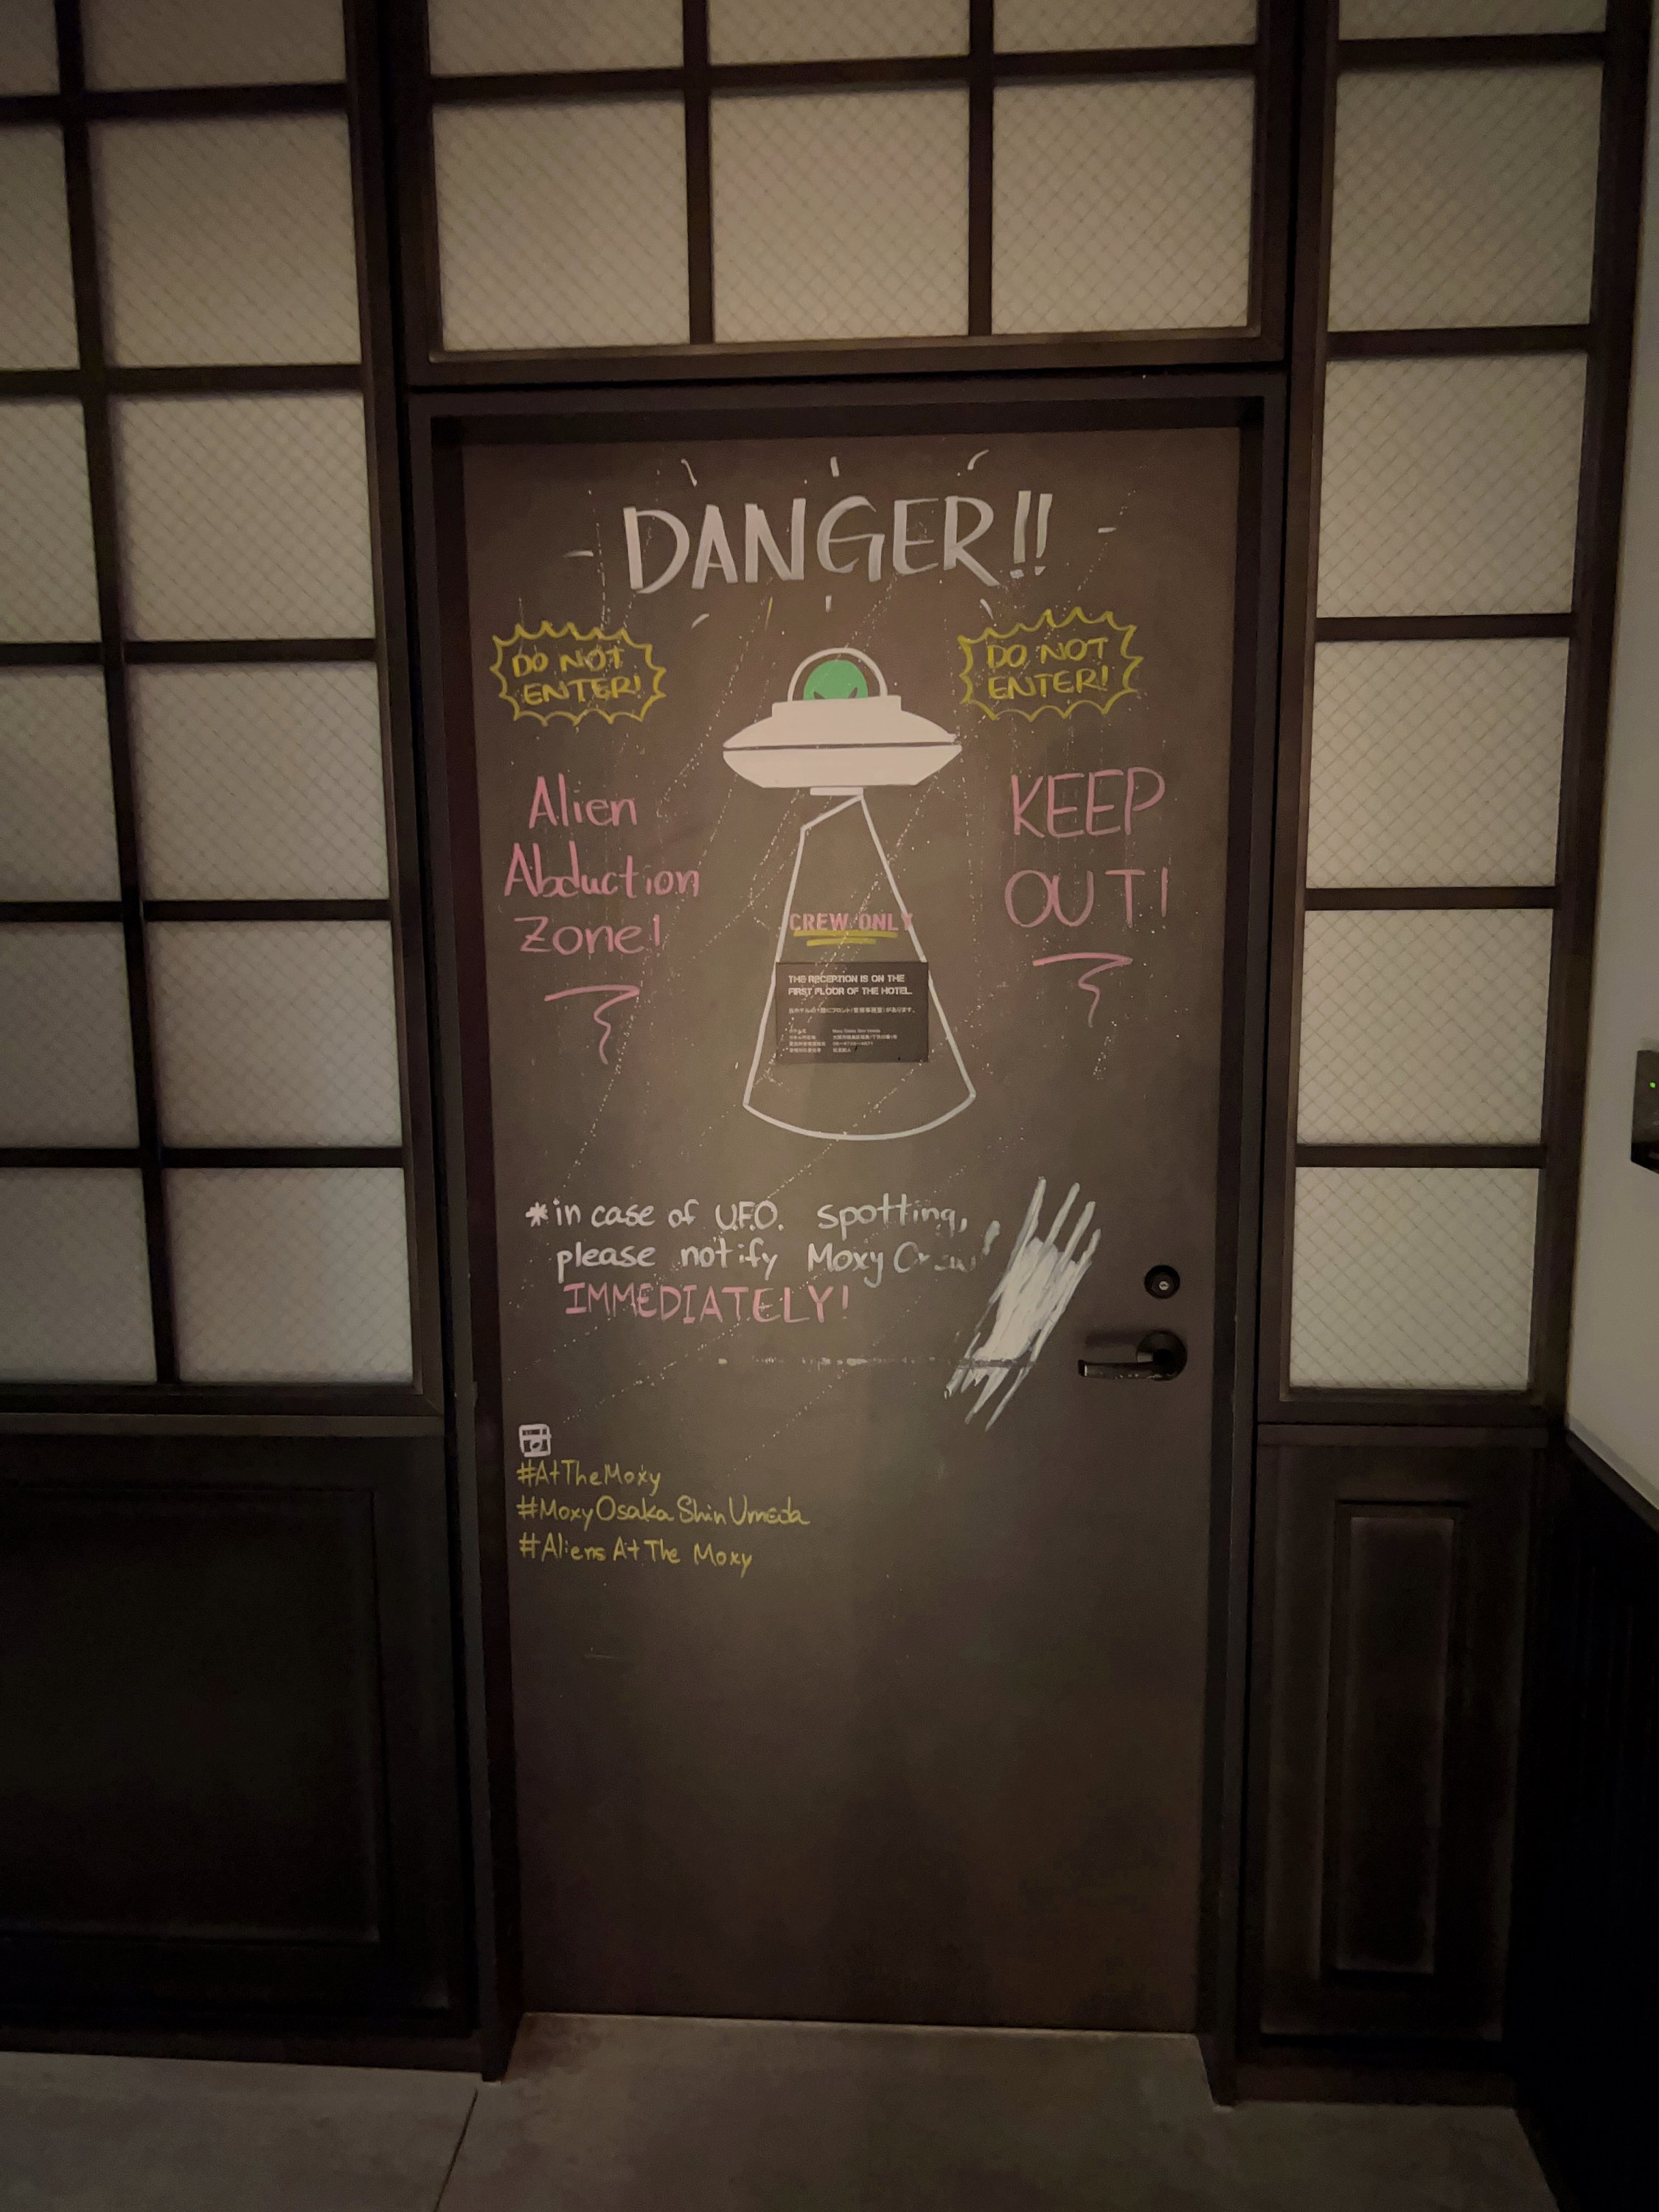 DANGER!!
DO NOT
ENTER!
DO NOT
ENTER!
Alien
Abduction
Zone!
KEEP
OUT!
CREW ONLY
THE RECEPTION IS ON THE
FIRST FLOOR OF THE HOTEL.
Moxy Osaka Shin Umeda
*in case of U.F.O. spotting,
please notify Moxy Crew
IMMEDIATELY!
#AtTheMoxy
#MoxyOsakaShinUmeda
#AliensAtThe Moxy